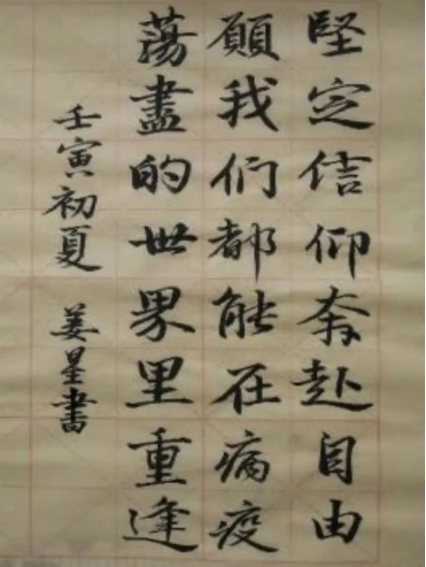 堅定信仰奔赴自由
願我们都能在病疫
蕩盡的世界里重逢
壬寅初夏 姜星書